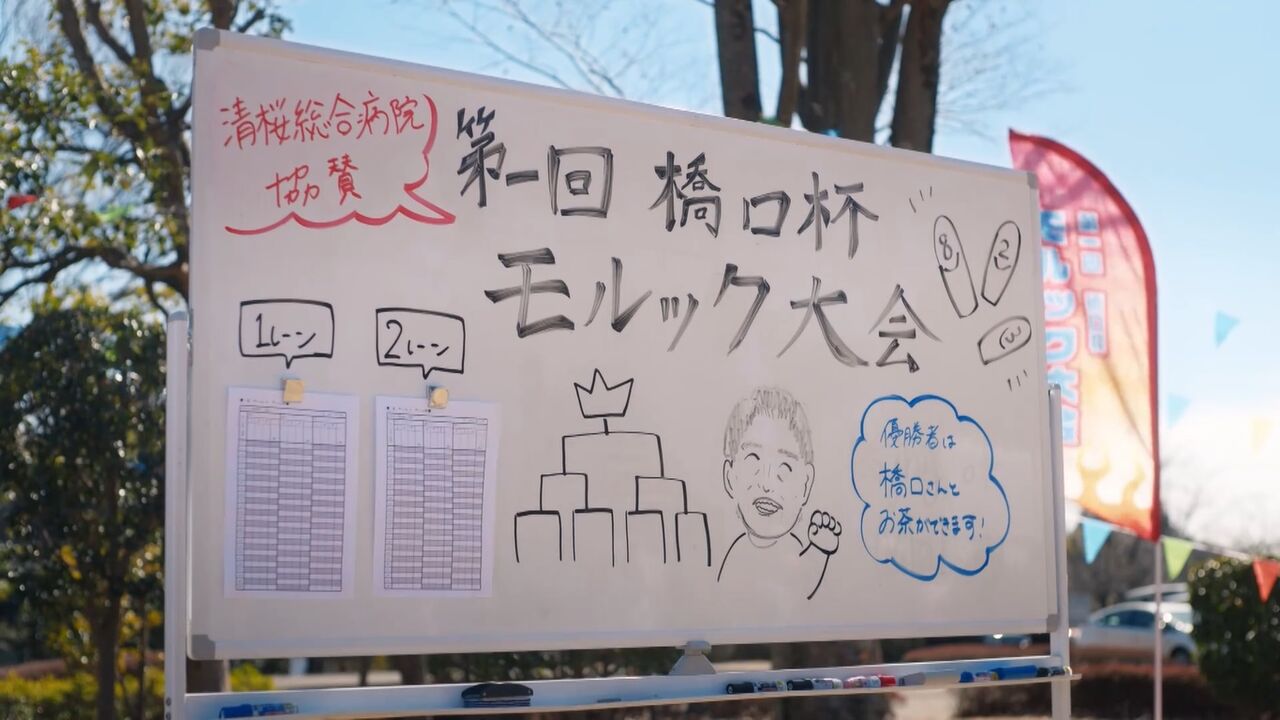 清桜総合病院
協賛
第一回 橋口杯
モルック大会
8
2
3
1レーン
2レーン
優勝者は
橋口さんと
お茶ができます!
モルック大会